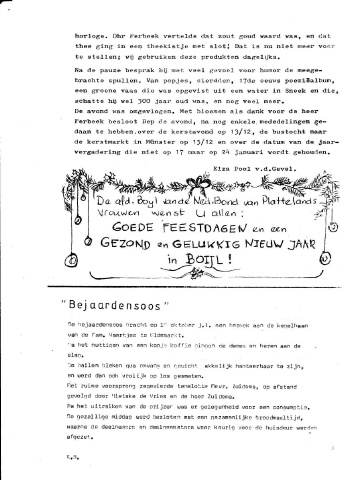 horloge. Dhr Ferbeek vertelde dat zout goud waard was, en dat
thee ging in een theekistje met slot! Dat is nu niet meer voor
te stellen; wij gebruiken deze produkten dagelijks.
Na de pauze besprak hij met veel gevoel voor humor de meege-
brachte spullen. Van popjes, sierdden, 17de eeuws poeziealbum,
een groene vaas die was opgevist uit een water in Sneek en die,
schatte hij wel 300 jaar oud was, en nog veel meer.
De avond was omgevlogen. Met bloemen als dank voor de heer
Ferbeek besloot Bep de avond, na nog enkele mededelingen ge-
daan te hebben over de kerstavond op 13/12, de bustocht naar
de kerstmarkt in Münster op 13/12 en over de datum van de jaar-
vergadering die niet op 17 maar op 24 januari wordt gehouden.
Elza Pool v.d.Gevel.
De afd. Boyl van de Ned. Bond van Plattelands
Vrouwen wenst U allen:
GOEDE FEESTDAGEN en een
GEZOND en GELUKKIG NIEUW JAAR
in BOIJL!
"Bejaardensoos"
De bejaardensoos bracht op oktober j.l. een bezoek aan de kegelbaan
van de Fam. Vaartjes te Elsmarkt.
Na het nuttigen van een kopje koffie gingen de dames en heren aan de
slag.
De ballen bleken qua omvang en gewicht makkelijk hanteerbaar te zijn,
en werd dan ook vrolijk op los gesmeten.
Met ruime voorsprong zegevierde tenslotte Mevr. Zuidema, op afstand
gevolgd door Mietske de Vries en de heer Zuidema.
Na het uitreiken van de prijzen was er gelegenheid voor een consumptie.
De gezellige middag werd besloten met een gezamenlijke broodmaaltijd,
waarna de deelnemers en deelneemsters weer keurig voor de huisdeur werden
afgezet.